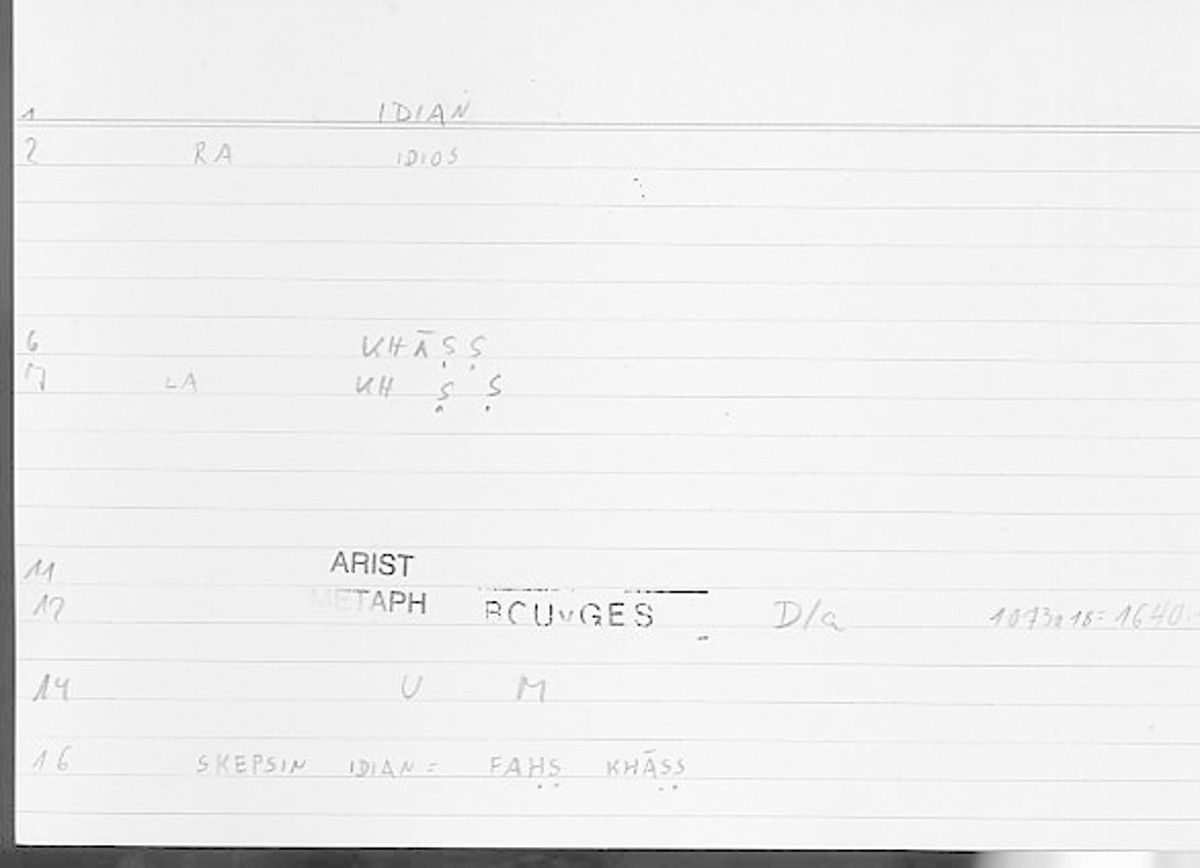 1 IDIAN
2 RA IDIOS
6 KHĀṢṢ
7 LA KH Ṣ Ṣ
11 ARIST
12 METAPH BOUYGES D/a 1073a18=1640.
14 U M
16 SKEPSIN IDIAN = FAḤṢ KHĀṢṢ